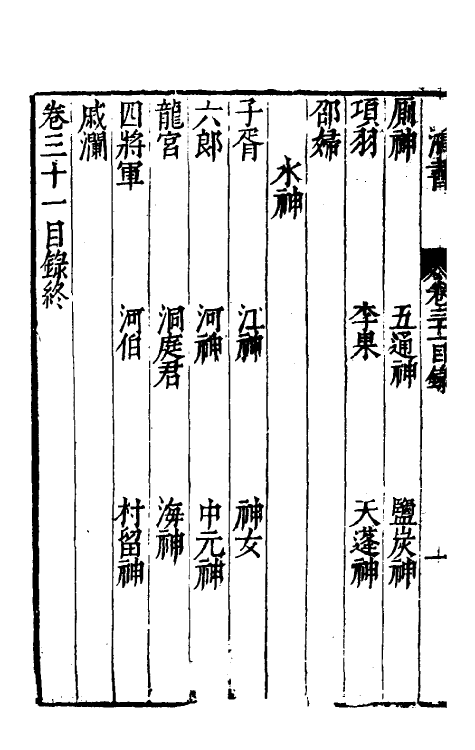 卷三十一目錄
廁神 五通神 鹽炭神
項羽 李果 天蓬神
邵婦
水神
子胥 江神 神女
六郎 河神 中元神
龍宮 洞庭君 海神
四將軍 河伯 村留神
戚瀾
卷三十一目錄終